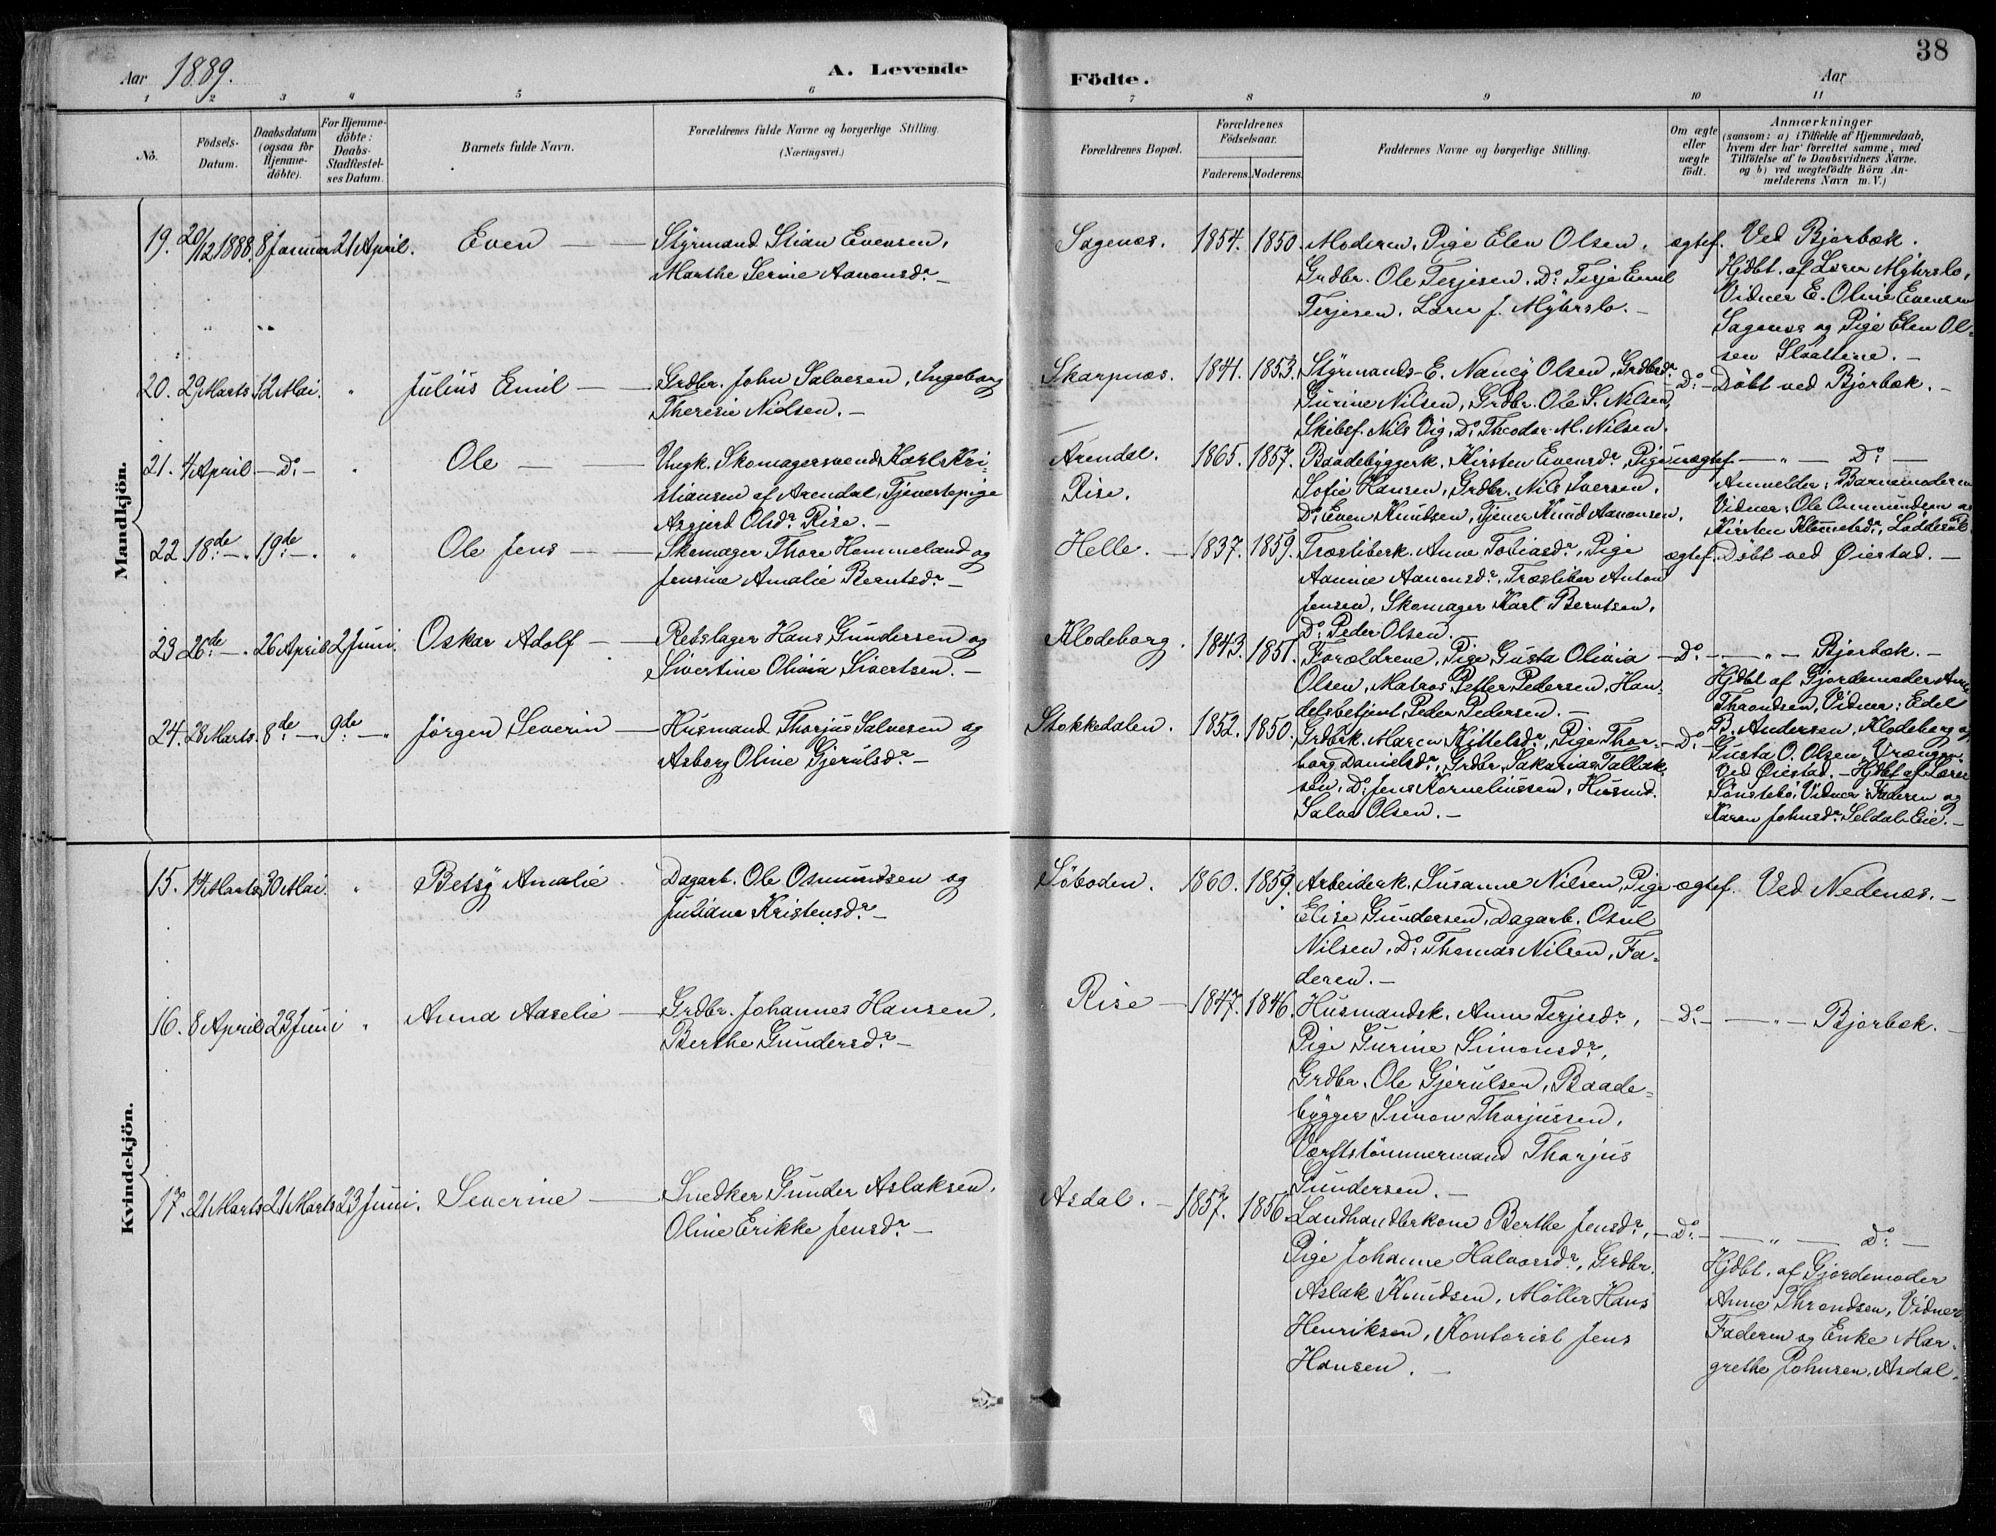 38
Aar 1889.
A. Levende
Födte.
Aar
1 2 3 4 5 6 7 8 9 10 11
No.
Födsels-
Datum.
Daabsdatum
(ogsaa for
Hjemme-
döbte).
For Hjemme-
döbte:
Daabs-
Stadfæstel-
ses Datum.
Barnets fulde Navn.
Forældrenes fulde Navne og borgerlige Stilling.
(Næringsvei.)
Forældrenes Bopæl.
Forældrenes
Födselsaar.
Faderens. Moderens.
Faddernes Navne og borgerlige Stilling.
Om ægte
eller
uægte
födt.
Anmærkninger
(saasom: a) i Tilfælde af Hjemmedaab,
hvem der har forrettet samme, med
Tilföielse af to Daabsvidners Navne.
og b) ved uægtefödte Börn An-
melderens Navn m. V.)
Mandkjön.
19. 20/12 1888. 8 Januar 21 April. Even
Styrmand Stian Evensen,
Marthe Serine Aanonsdr. —
Sagenæs. 1854. 1850.
Moderen, Pige Elen Olsen,
Grdbr. Ole Terjesen, Do Terje Emil
Terjesen, Lærer J. Myhrslo. —
ægtef.
Ved Bjorbæk.
Hjdbt. af Lærer Myhrslo,
Vidner E. Oline Evensen
Sagenæs og Pige Elen Ol-
sen Slaattene. —
20. 29 Marts 12 Mai. " Julius Emil —
Grdbr. John Salvesen, Ingeborg
Theresie Nielsen. —
Skarpnæs. 1841. 1853.
Styrmands-E. Nancy Olsen, Grdbrdr.
Gurine Nilsen, Grdbr. Ole S. Nilsen,
Skibsf. Nils Vig, Do Theodor M. Nilsen.
— Do — Döbt ved Bjorbæk. —
21. 4 April — Do — " Ole —
Ungk. Skomagersvend Karl Kri-
stiansen af Arendal, Tjenestepige
Asgjerd Olsdr. Rise. —
Arendal.
Rise.
1865. 1857.
Baadebyggerk. Kirsten Evensdr., Pige
Sofie Hansen, Grdbr. Nils Iversen,
Do Even Knudsen, Tjener Knud Aanonsen.
uægtef — " — Do —
Anmelder: Barnemoderen
Vidner: Ole Ommundsen og
Kirsten Klemetsdr.
22. 18de — 19de — " Ole Jens —
Skomager Thore Hommeland og
Jensine Amalie Berntsdr. —
Helle. — 1837. 1859.
Træsliberk. Anne Tobiasdr., Pige
Aanine Aanonsdr., Træsliber Anton
Jensen, Skomager Karl Berntsen,
Do Peder Olsen.
ægtef. Döbt ved Øiestad. —
23 26de — 26 April 2 Juni. Oskar Adolf —
Rebslager Hans Gundersen og
Sivertine Olivia Sivertsen. —
Klodeborg. 1843. 1851.
Forældrene, Pige Gusta Olivia
Olsen, Matros Petter Pedersen, Han-
delsbetjent Peder Pedersen. —
— Do — — " — Bjorbæk. —
Hjdbt af Gjordemoder Anne
Throndsen, Vidner: Edel
B. Andersen, Klodeborg og
Gusta O. Olsen, Vrængen.
24. 28 Marts 8de — 9de — Jørgen Severin —
Husmand Thorjus Salvesen og
Asborg Oline Gjerulsdr. —
Stokkedalen. 1852. 1850.
Grdbrk. Maren Kittelsdr., Pige Thor-
borg Danielsdr., Grdbr. Sakarias Tallak-
sen, Do Jens Korneliussen, Husmd.
Salve Olsen. —
— Do —
Ved Øiestad. — Hjdbt af Lærer
Sønstebö, Vidner: Faderen og
Karen Johnsdr. Seldal-Eie. —
Kvindekjön.
15. 14 Marts 30 Mai. " Betsy Amalie
Dagarb. Ole Osmundsen og
Juliane Kristensdr. —
Söboden. 1860. 1859.
Arbeiderk. Susanne Nilsen, Pige
Elise Gundersen, Dagarb. Osul
Nilsen, Do Thomas Nilsen, Fa-
deren. —
ægtef. Ved Nedenæs. —
16. 8 April 23 Juni " Anna Aaselie —
Grdbr. Johannes Hansen,
Berthe Gundersdr. —
Rise — 1847. 1846.
Husmandsk. Anne Terjesdr.,
Pige Gurine Simonsdr.,
Grdbr. Ole Gjerulsen, Baade-
bygger Simon Thorjussen,
Værftstömmermand Thorjus
Gundersen. —
— Do — — " — Bjorbæk. —
17. 21 Marts 21 Marts 23 Juni. Severine —
Snedker Gunder Aslaksen,
Oline Erikke Jensdr. —
Asdal. — 1857. 1856
Landhandlerkone Berthe Jensdr.,
Pige Johanne Halvorsdr., Grdbr.
Aslak Knudsen, Møller Hans
Henriksen, Kontorist Jens
Hansen. —
— Do — — " — Do —
Hjdbt. af Gjordemoder
Anne Throndsen, Vidner
Faderen og Enke Mar-
grethe Johnsen, Asdal.